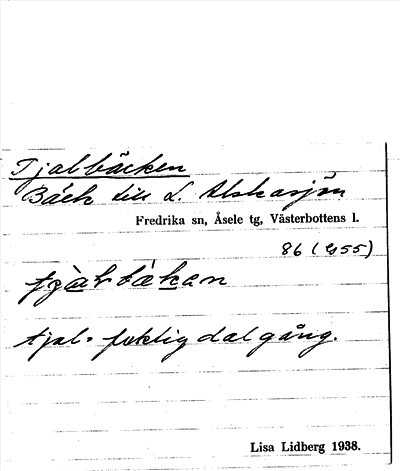 Tjalbäcken
Bäck till L. Alskasjön
Fredrika sn, Åsele tg, Västerbottens l.
86 (955)
tjalbäkan
tjal = fuktig dalgång.
Lisa Lidberg 1938.